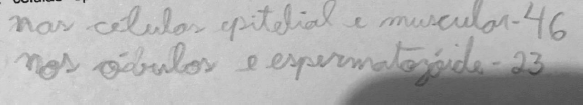 nas celulas epitelial e muscular-46
nos óvulos e espermatozóide-23